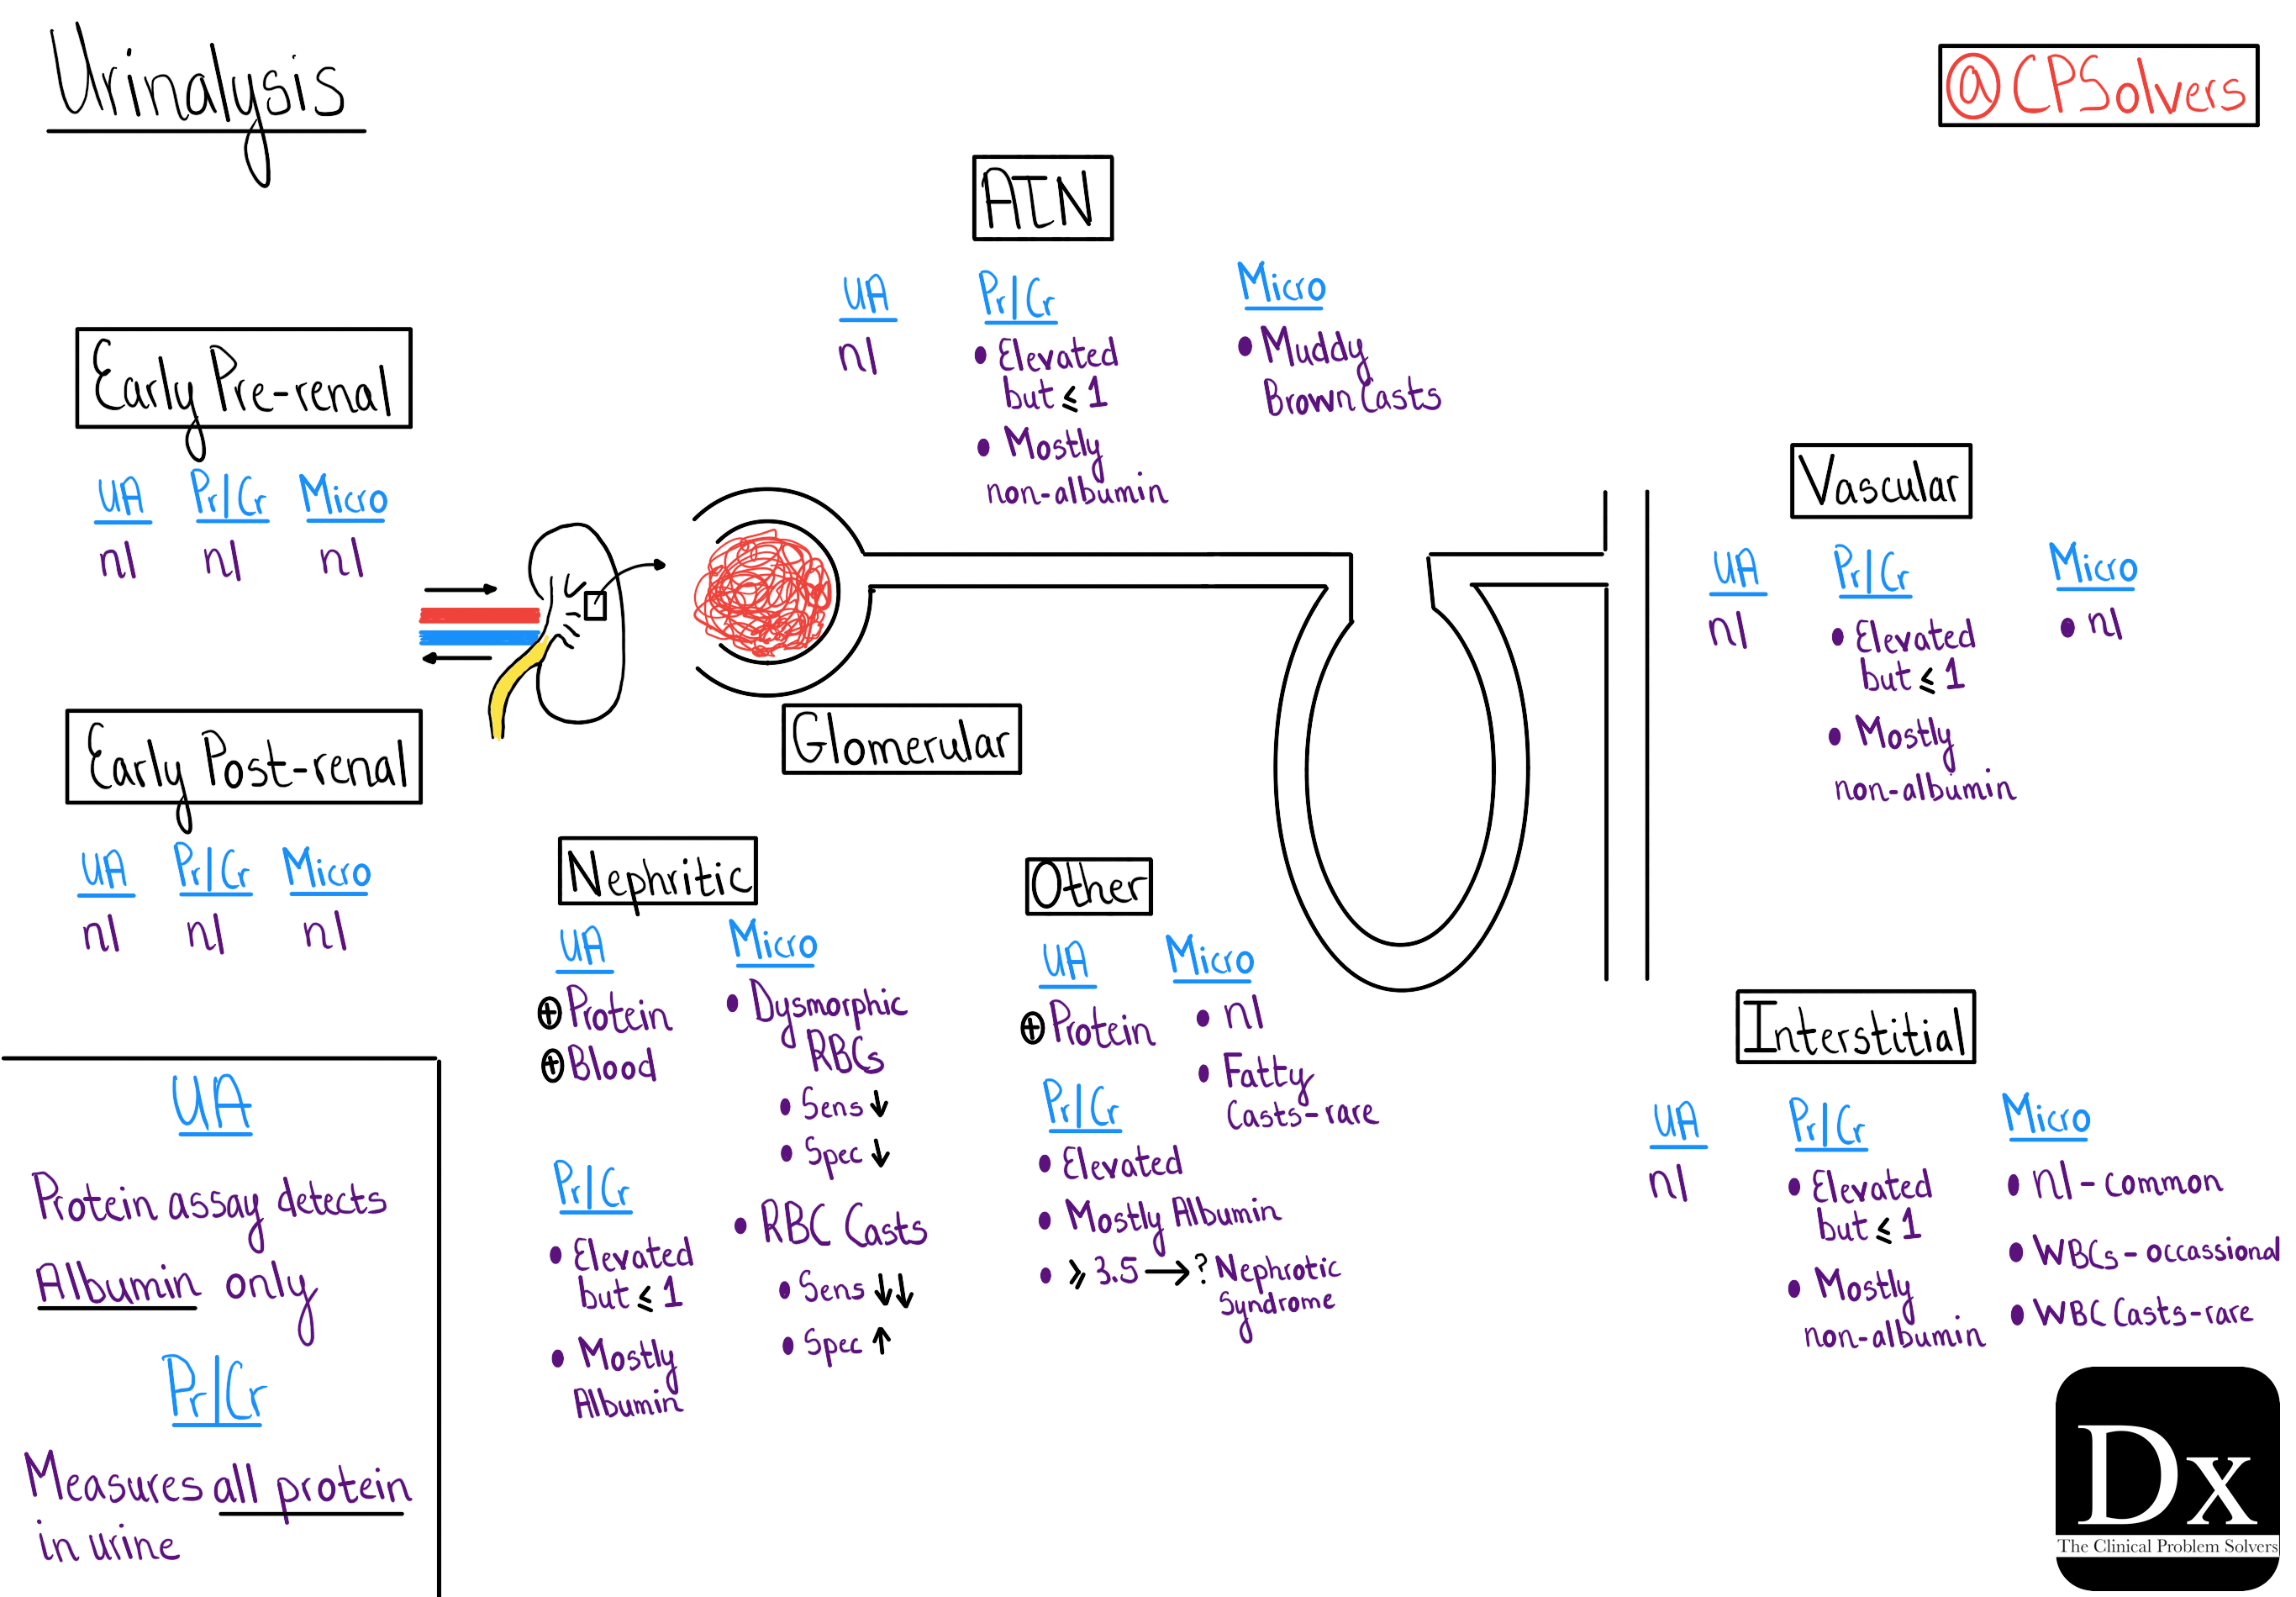 Urinalysis
@CPSolvers
ATN
UA Pr/Cr Micro
nl
• Elevated
but ≤ 1
• Mostly
non-albumin
• Muddy
Brown Casts
Early Pre-renal
UA Pr/Cr Micro
nl nl nl
Early Post-renal
UA Pr/Cr Micro
nl nl nl
Glomerular
Vascular
UA Pr/Cr Micro
nl
• Elevated
but ≤ 1
• Mostly
non-albumin
• nl
Nephritic
UA
⊕ Protein
⊕ Blood
Pr/Cr
• Elevated
but ≤ 1
• Mostly
Albumin
Micro
• Dysmorphic
RBCs
• Sens ↓
• Spec ↓
• RBC Casts
• Sens ↓↓
• Spec ↑
Other
UA
⊕ Protein
Micro
• nl
• Fatty
Casts-rare
Pr/Cr
• Elevated
• Mostly Albumin
• ≥ 3.5 → ? Nephrotic
Syndrome
Interstitial
UA Pr/Cr Micro
nl
• Elevated
but ≤ 1
• Mostly
non-albumin
• nl - common
• WBCs - occassional
• WBC Casts-rare
UA
Protein assay detects
Albumin only
Pr/Cr
Measures all protein
in urine
Dx
The Clinical Problem Solvers